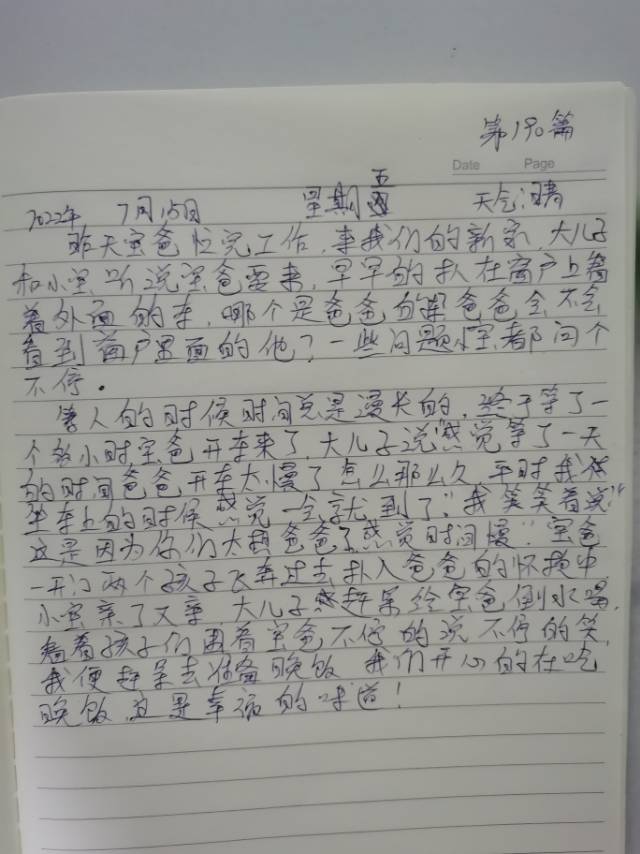 第190篇
Date Page
2022年 7月15日 星期五 天气:晴
昨天宝爸忙完工作,来我们的新家,大儿子
和小宝听说宝爸要来,早早的扒在窗户上看
着外面的车,哪个是爸爸的车爸爸会不会
看到窗户里面的他?一些问题小宝都问个
不停。
等人的时候时间总是漫长的,终于等了一
个多小时宝爸开车来了,大儿子说"感觉等了一天
的时间爸爸开车太慢了怎么那么久,平时我们
坐车上的时候感觉一会就到了"我笑笑着说"
这是因为你们太想爸爸了感觉时间慢"宝爸
一开门两个孩子飞奔过去扑入爸爸的怀抱中
小宝亲了又亲,大儿子赶紧给宝爸倒水喝,
看着孩子们围着宝爸不停的说不停的笑,
我便赶紧去准备晚饭 我们开心的在吃
晚饭,这是幸福的味道!